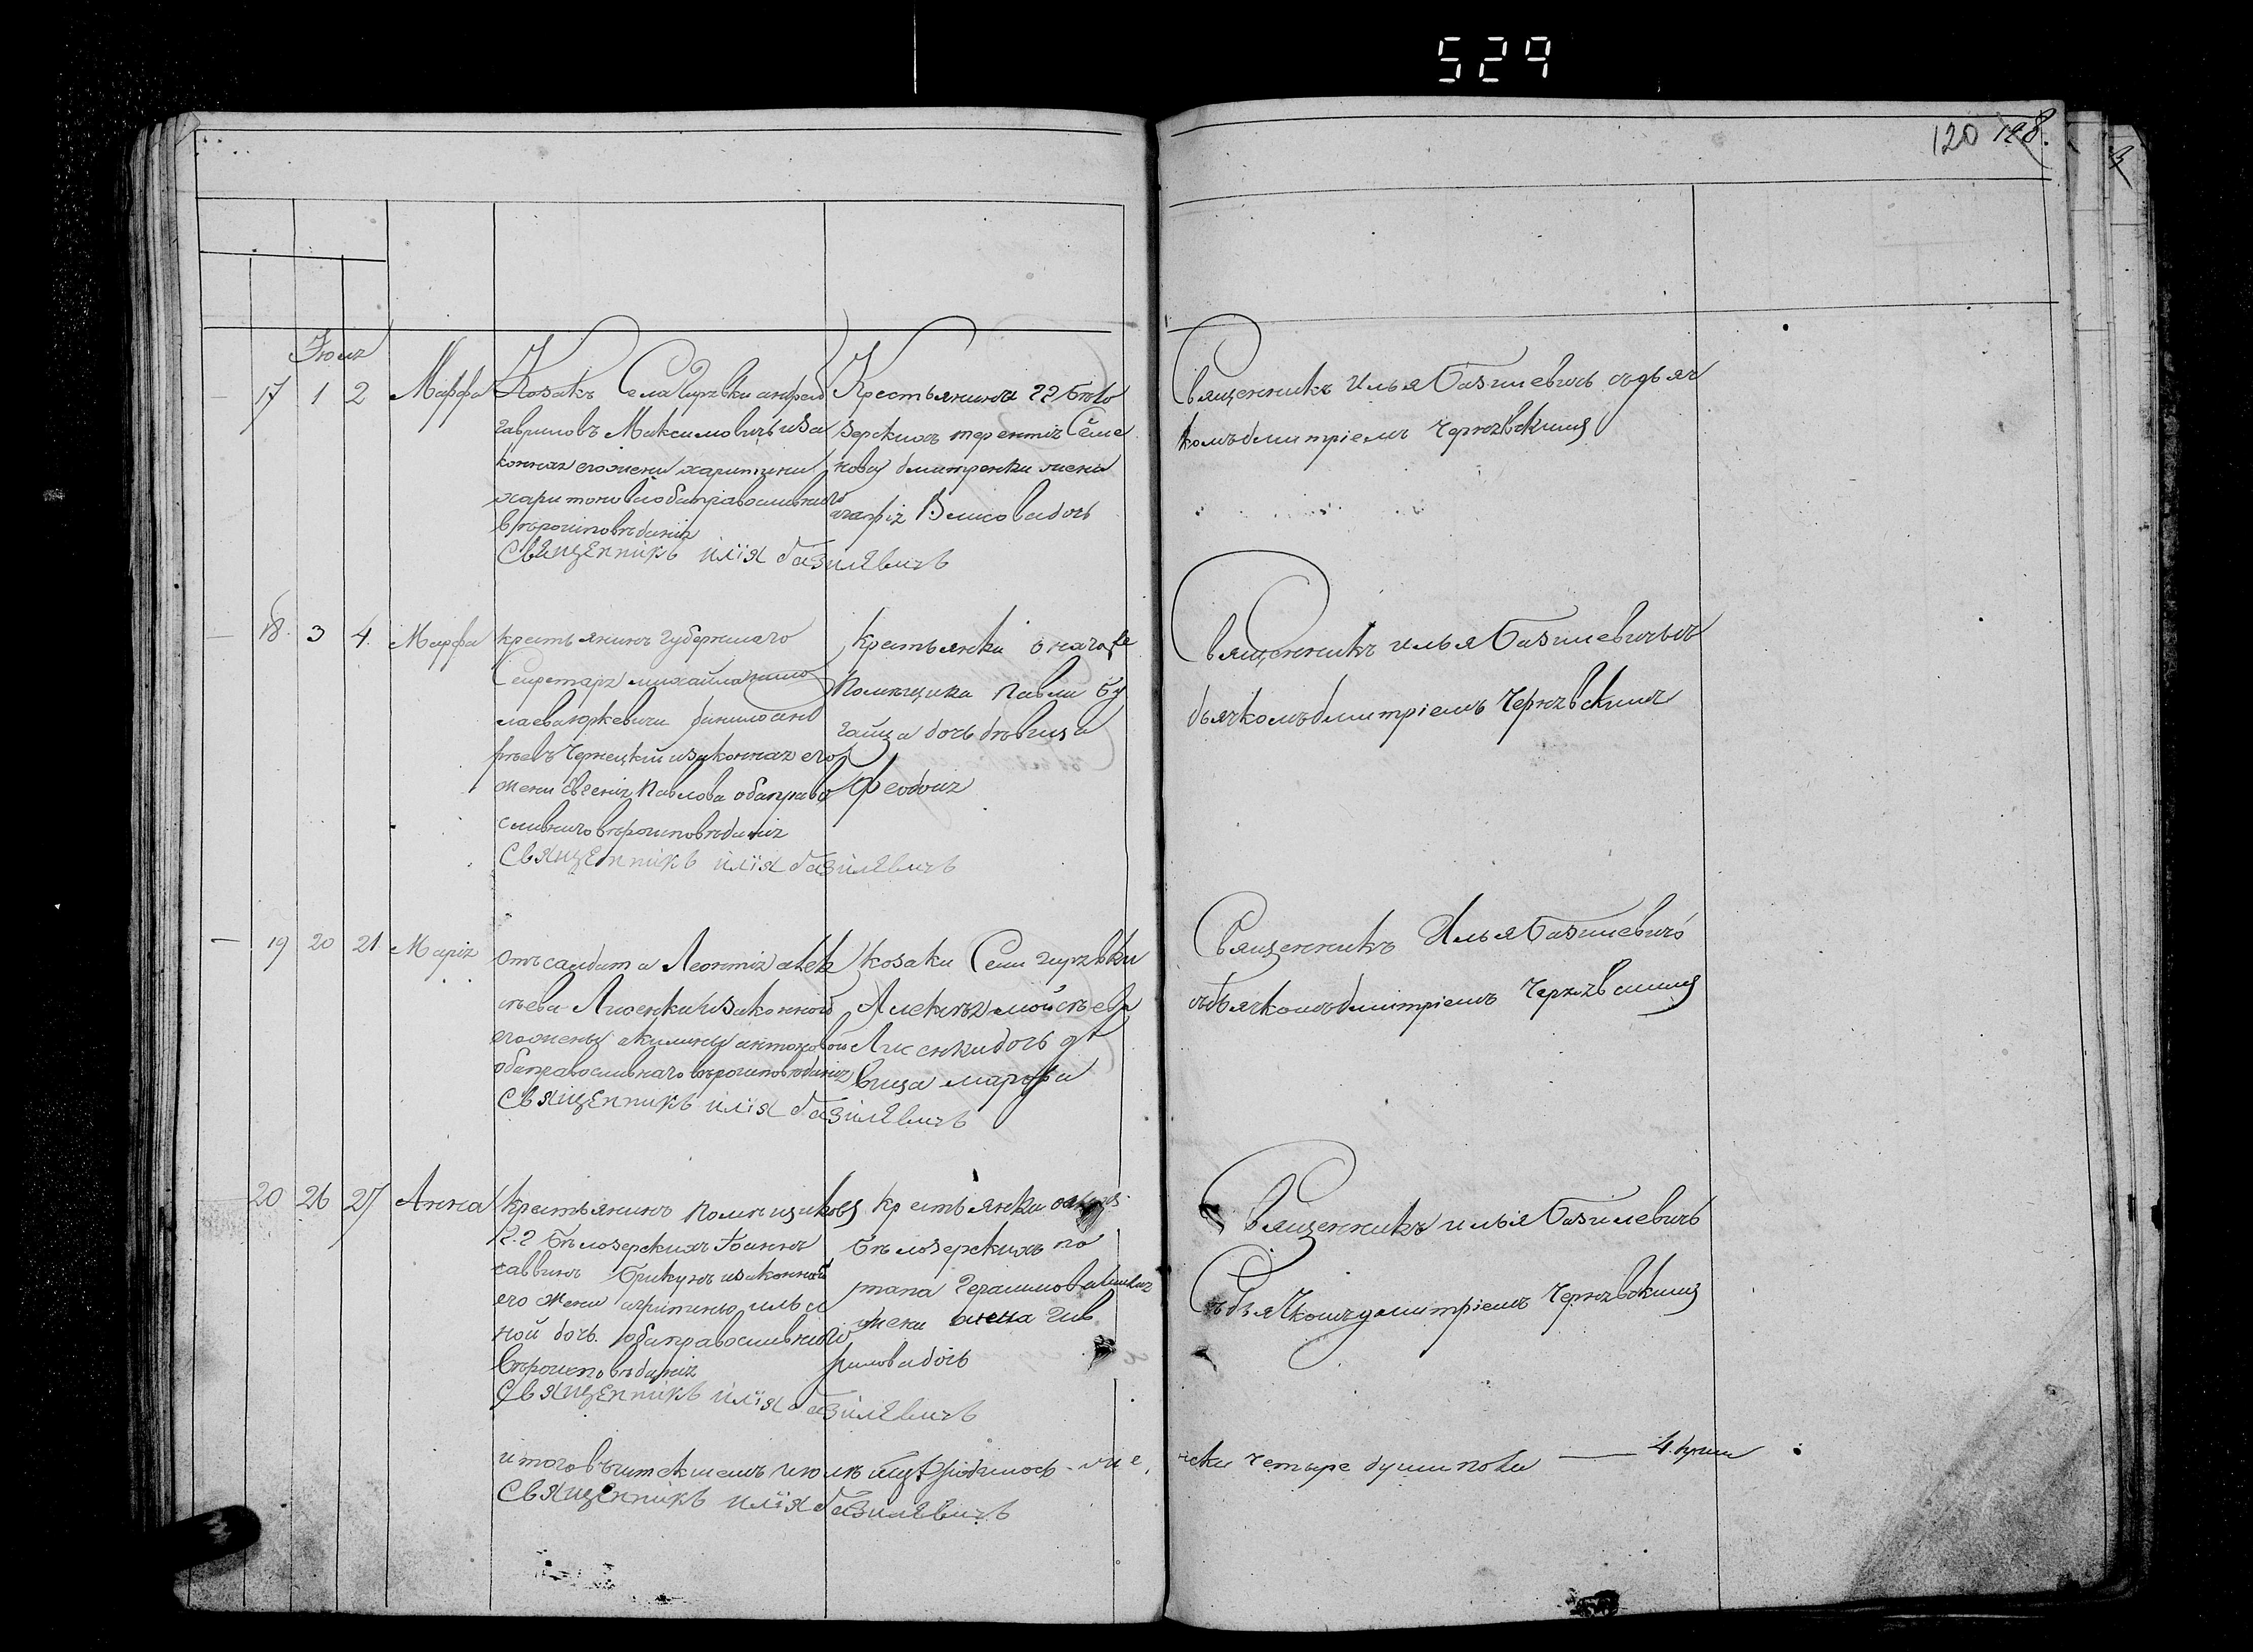 529
120 128.
Июля
17 1 2 Марфа
Козакъ Села Гирявки андрей
гавриловъ Максимовичъ иза
конная его жена харитина
харитонова оба православнаго
вѣроисповѣданія
Священникъ илія базилевичъ
Крестьянина гг Бѣло
зерскихъ терентія Семе
нова дмитренки жена
агафія Власова дочь
Священникъ Илья Базилевичъ съдьяч
комъ дмитріемъ Чернявскимъ
18. 3 4. Марфа
крестьянинъ губернскаго
Секретаря михайла
лаева юркевича данило
Чернецкій изаконная его
жена Евгенія Павлова оба право
славнаго вѣроисповѣданія
Священникъ илія базилевичъ
крестьянки
Помѣщика Павла Бу
гайца дочь дѣвица
Феодосія
Священникъ илья Базилевичъ съ
дьячкомъ дмитріемъ Чернявскимъ
19 20 21 Марія
отъ салдата Леонтія алек
сѣева Лисенки изаконной
его жены акилины антоновой
оба православнаго вѣроисповѣданія
Священникъ илія базилевичъ
козака Села гирявки
Алексѣя мойсѣева
Лисенки дочь дѣ
вица марфа
Священникъ Илья Базилевичъ
съдьячкомъ дмитріемъ Чернявскимъ
20 26 27 Анна
крестьянинъ помѣщиковъ
г.г Бѣлозерскихъ Іоаннъ
саввинъ Брикунъ изаконной
его жены
ной дочь оба православнаго
вѣроисповѣданія
Священникъ илія базилевичъ
крестьянки
Бѣлозерскихъ по
тапа Герасимова
жена гав
рилова дочь
Священникъ илья Базилевичъ
Съдьячкомъ димитріемъ Чернявскимъ
итого въ истекшемъ июлѣ родилось же
нска четыре души пола — 4. души
Священникъ илія базилевичъ